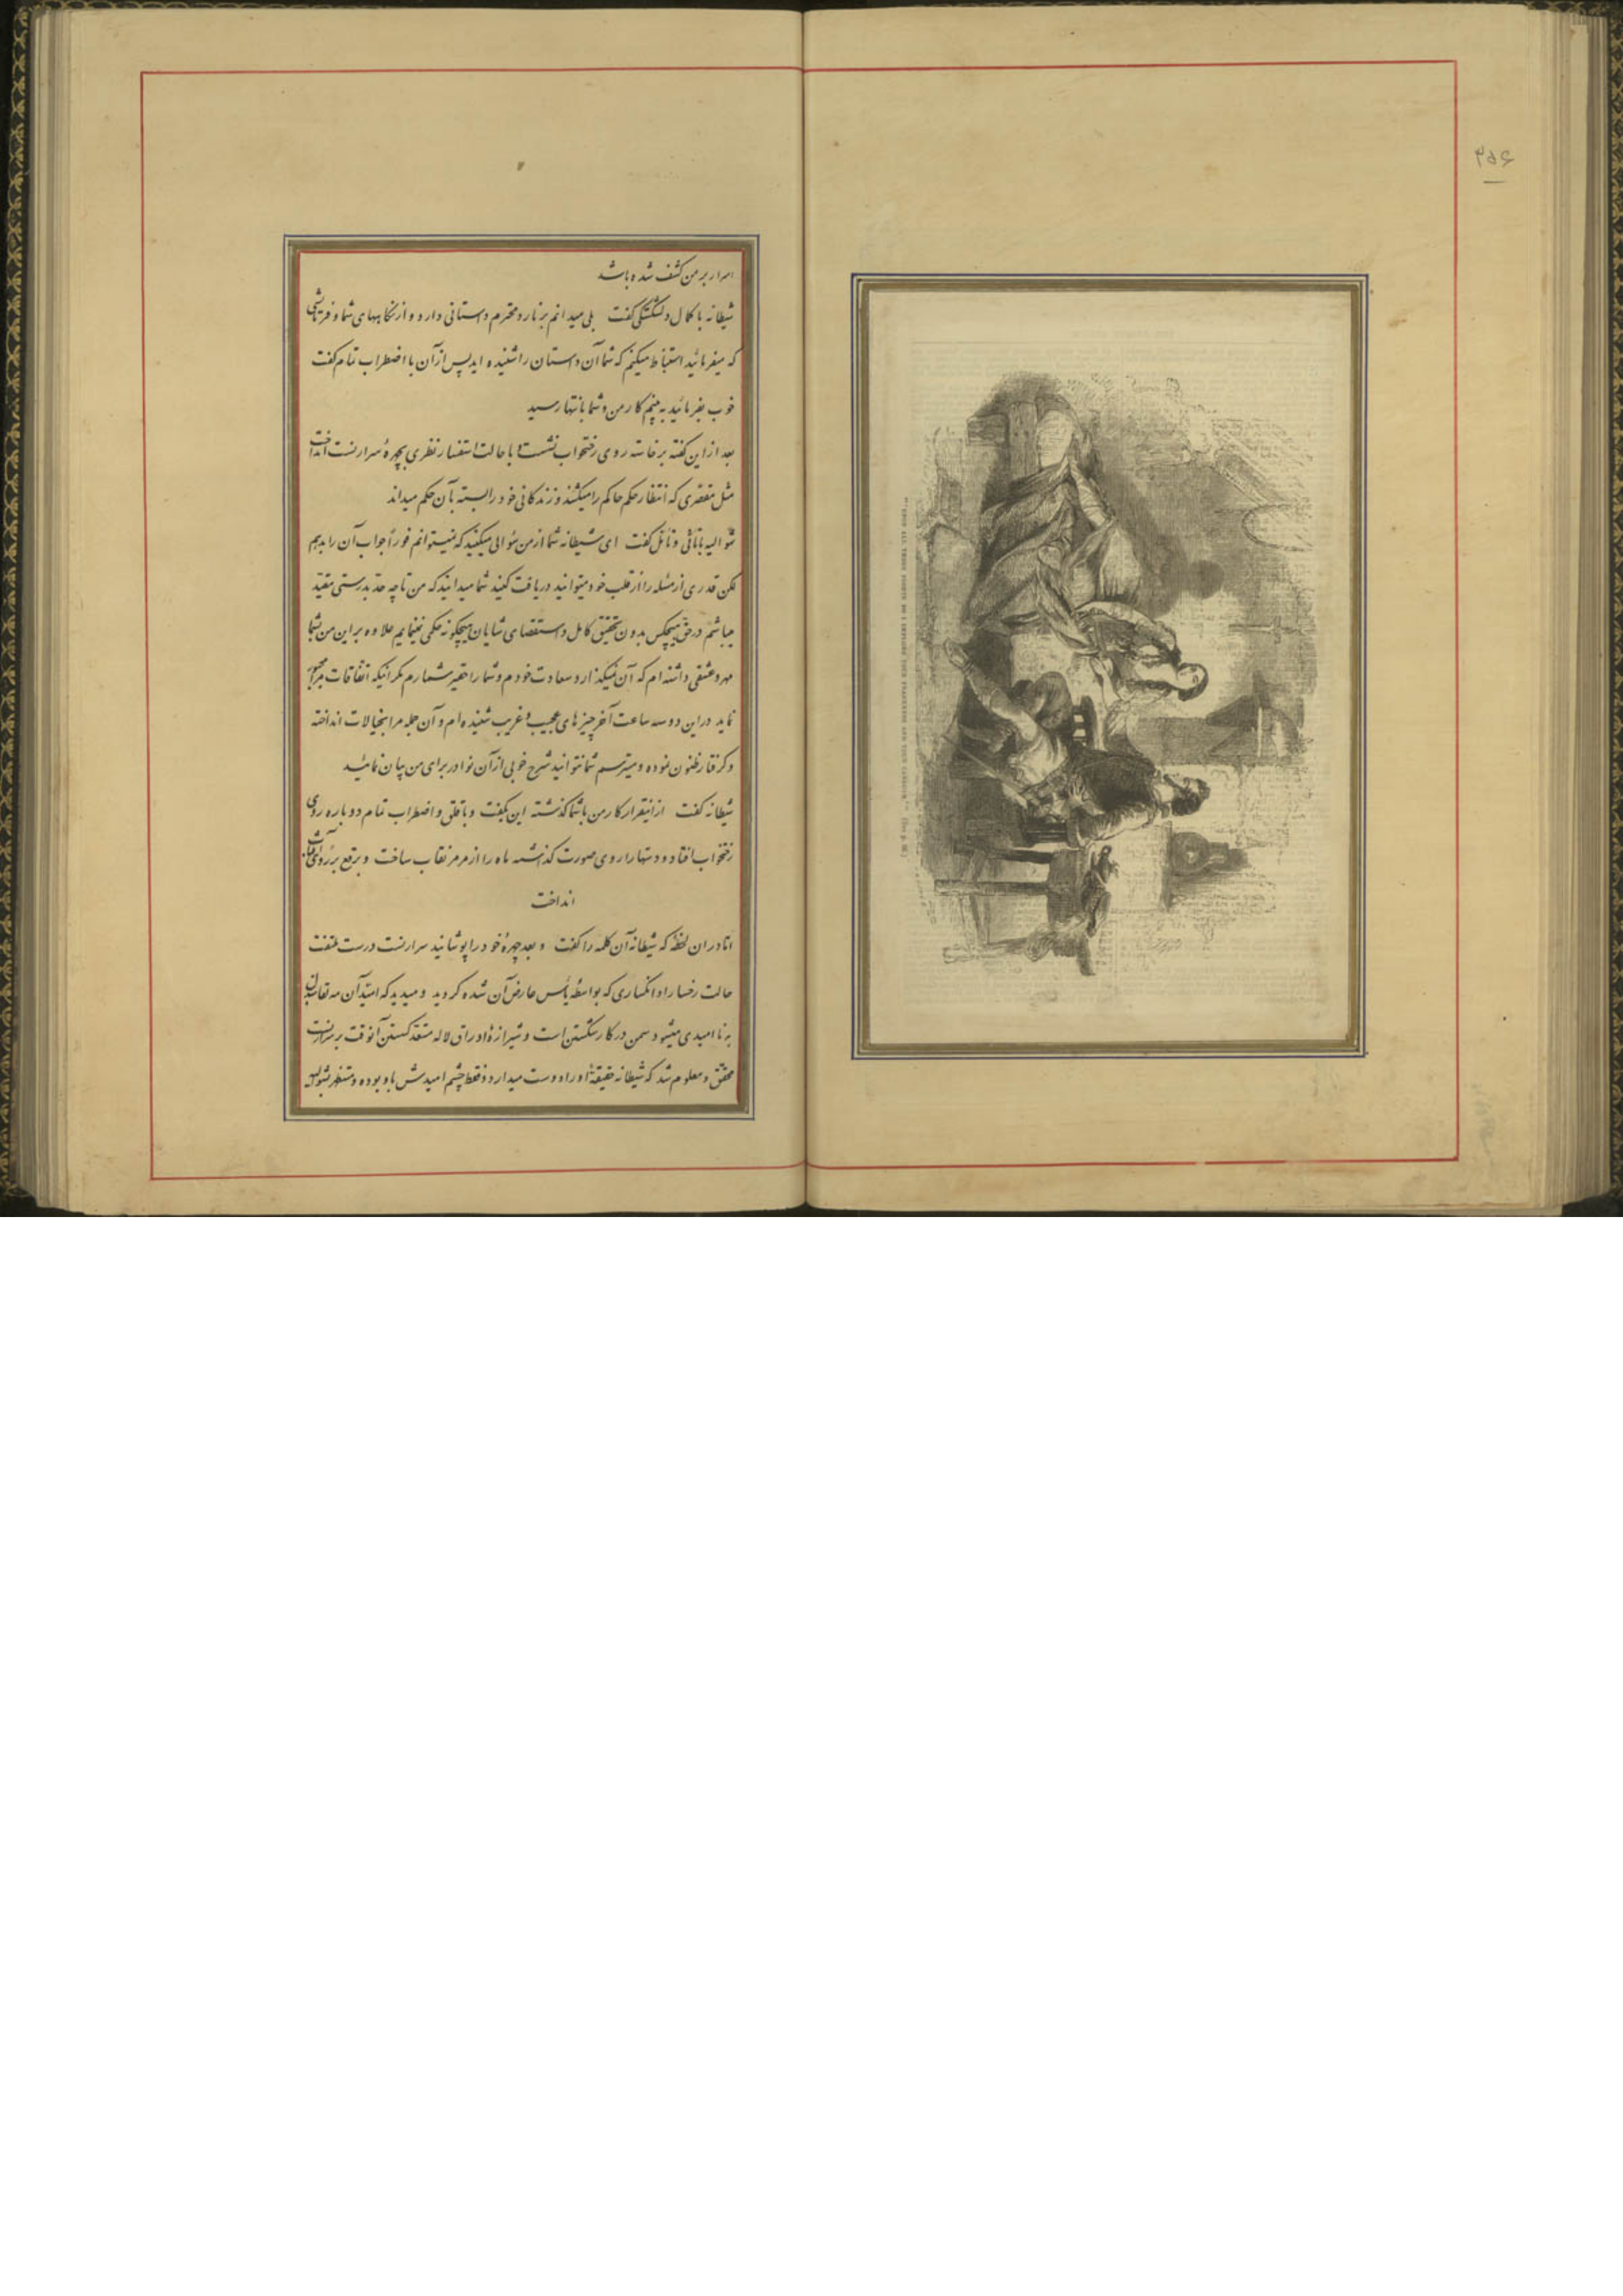 ۳۵۶
اسرار بر من کشف شده باشد
شیطانه با کمال دلشکستگی گفت بلی میدانم برنارد محترم داستانی دارد و از نگاههای شما و فرمایشی
که میفرمائید استنباط میکنم که شما آن داستان را شنیده اید پس از آن با اضطراب تمام گفت
خوب بفرمائید به بینم کار من و شما بانتها رسید
بعد از این گفته برخاسته روی رختخواب نشست و با حالت استفسار نظری بچهرهٔ سرارنست انداخت
مثل مقصری که انتظار حکم حاکم را میکشند و زندگانی خود را بسته بآن حکم میداند
شوالیه با تأنی و تأمل گفت ای شیطانه شما از من سؤالی میکنید که نمیتوانم فوراً جواب آن را بدهم
لکن قدری از مسئله را از قلب خود میتوانید دریافت کنید شما میدانید که من تا چه حد بدرستی مقید
میباشم در حق هیچکس بدون تحقیق کامل و استقصای شایان هیچگونه حکمی نمینمایم علاوه بر این من بشما
مهر و عشقی داشته ام که آن نمیگذارد سعادت خودم و شما را حقیر شمارم مگر اینکه اتفاقات مرا مجبور
نماید در این دو سه ساعت آخر چیزهای عجیب و غریب شنیده ام و آن جمله مرا بخیالات انداخته
و گرفتار ظنون نموده و میترسم شما نتوانید شرح خوبی از آن نوادر برای من بیان نمائید
شیطانه گفت از اینقرار کار من با شما گذشته این بگفت و با قلق و اضطراب تمام دوباره روی
رختخواب افتاد و دستها را روی صورت گذاشته ماه را از مرمر نقاب ساخت و برقع بر روی آفتاب
انداخت
اما در ان لحظه که شیطانه آن کلمه را گفت و بعد چهرهٔ خود را پوشانید سرارنست درست ملتفت
حالت رخسار او انکساری که بواسطه یأس عارض آن شده گردید و میدید که امید آن مه لقا مبدل
به ناامیدی میشود سمن در کار شکستن است و شیرازهٔ اوراق لاله مستعد گسستن آنوقت بر سرارنست
محقق و معلوم شد که شیطانه حقیقةً او را دوست میدارد و فقط چشم امیدش باو بوده و منتظر شوالیه